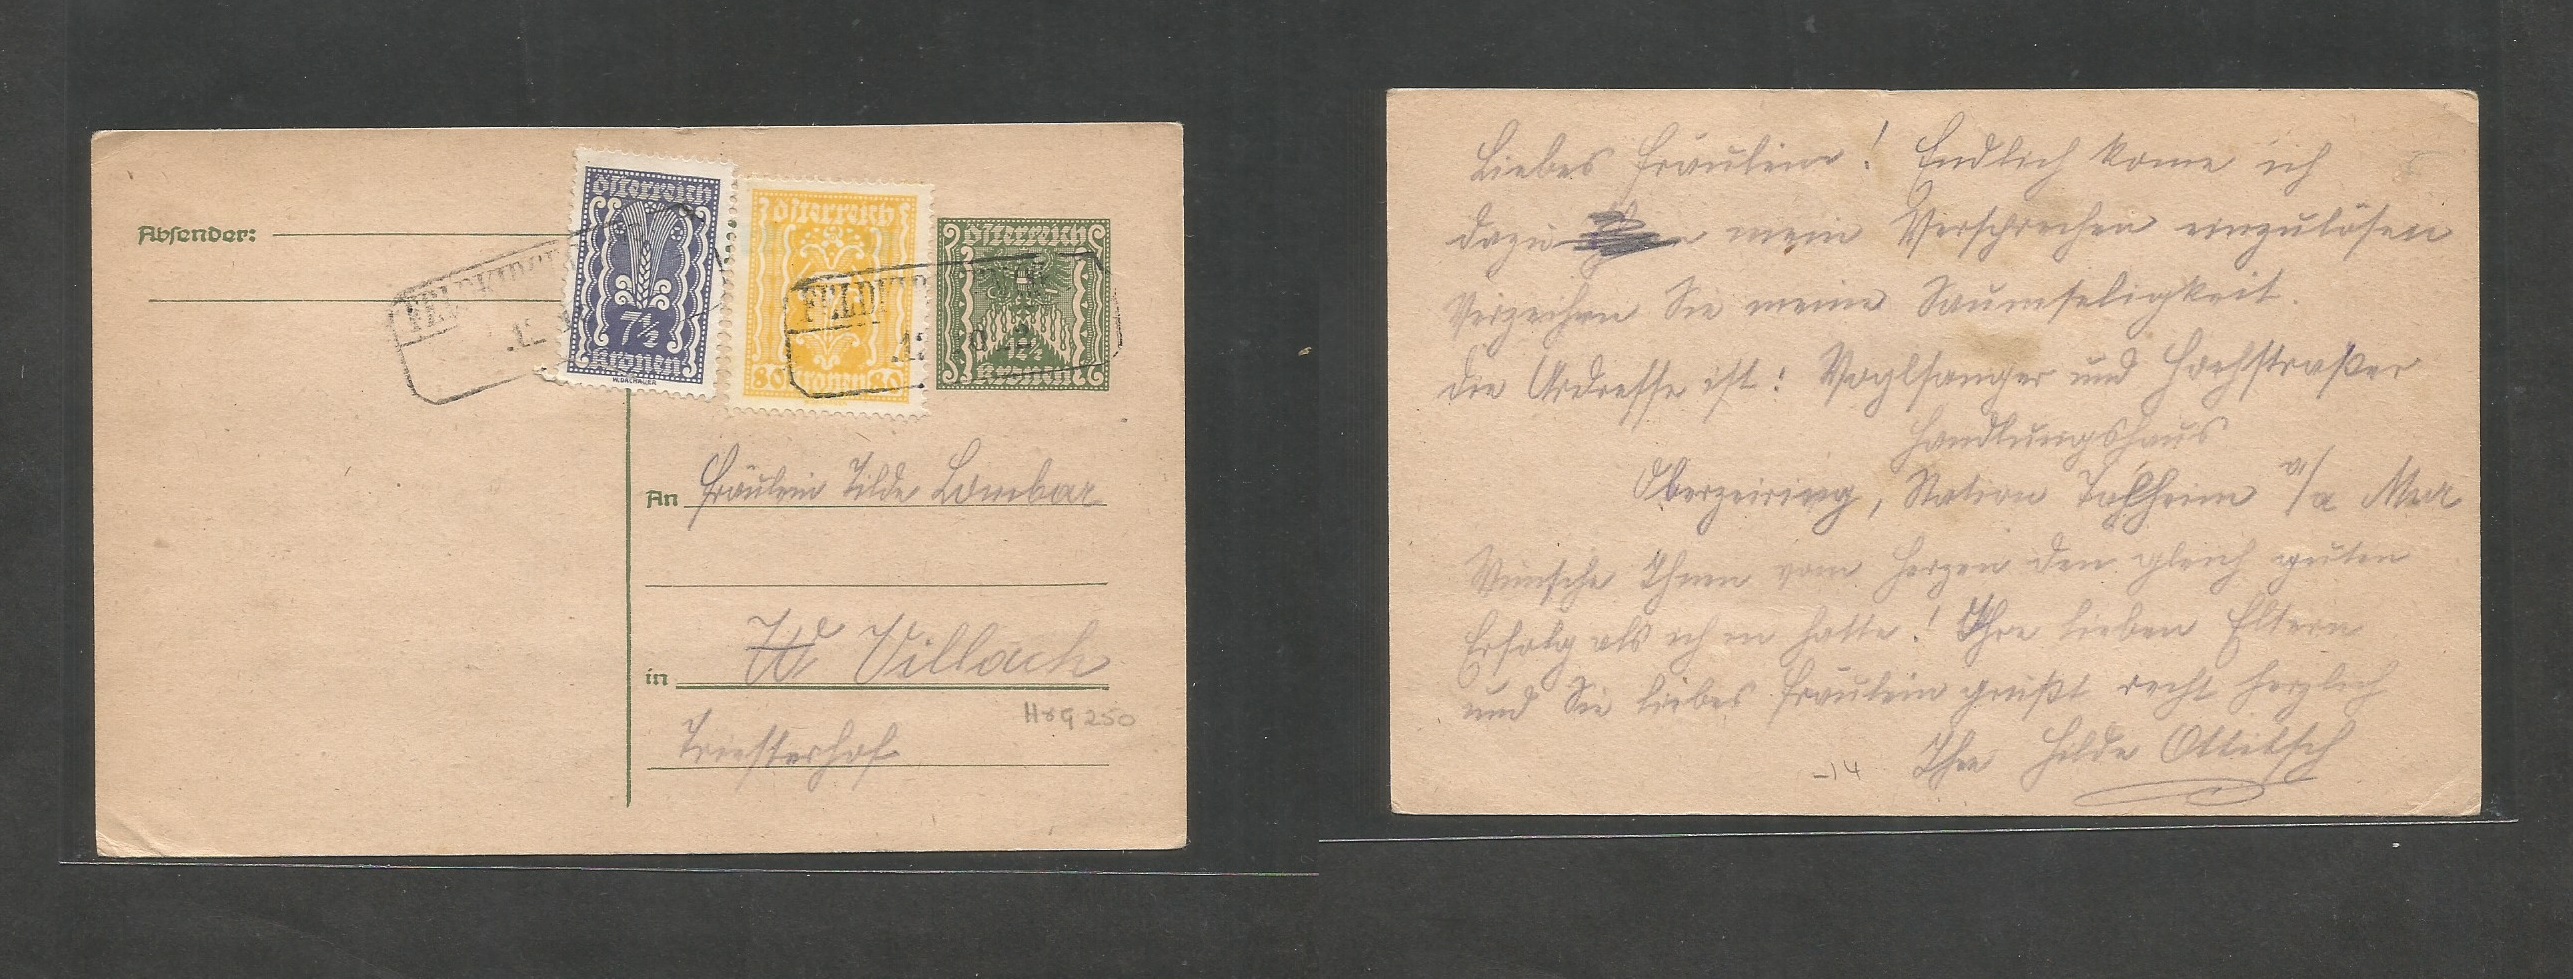 Absender:
österreich
7½
Kronen
W. DACHAUER
österreich
80 Kronen 80
österreich
12½
Kronen
FELDKIRCHEN
FELDKIR
An Fräulein Tilde Lombar
in Villach
H&G 250
Triesterhof
Liebes Fräulein! Endlich kome ich
dazu mein Versprechen einzulösen
Verzeihen Sie meine Saumseligkeit.
die Adresse ist: Voglsanger und Hochstraßer
Handlungshaus
Oberzeiring, Station Talheim a/a Mur
Wünsche Ihnen vom Herzen den gleich guten
Erfolg als ich in hatte! Ihre lieben Eltern
und Sie liebes Fräulein grüßt recht herzlich
Ihre Hilde Ottitsch
-14